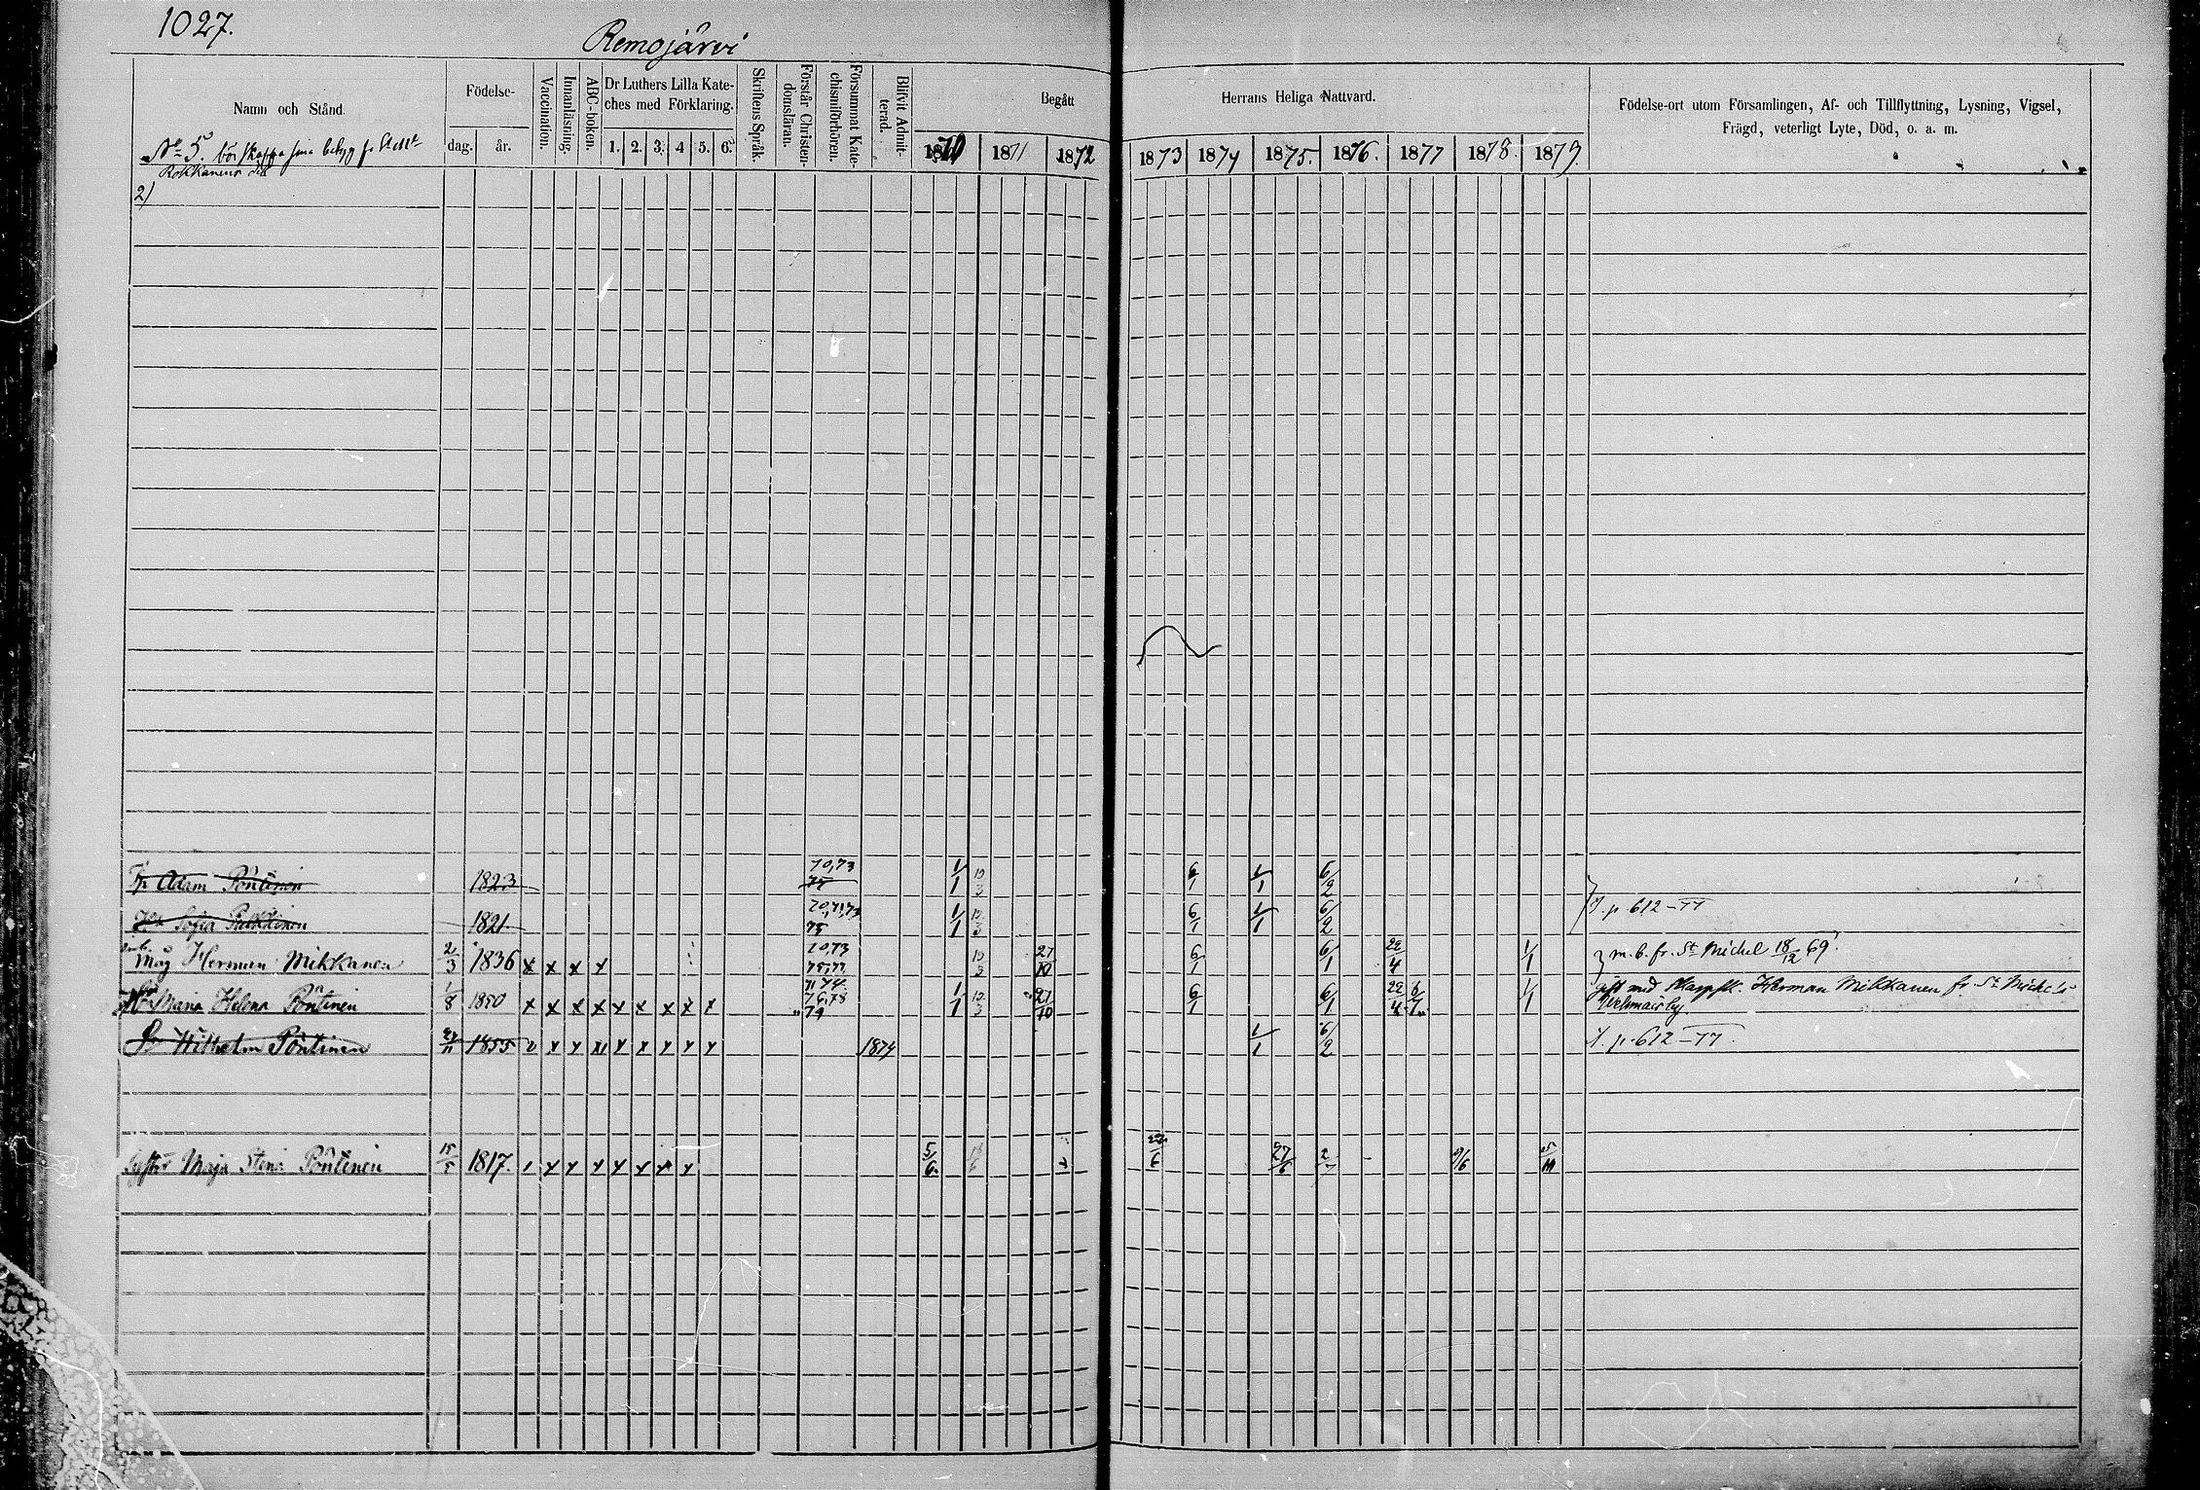 1027.
Remojärvi
Namn och Stånd.
Födelse-
dag.
år.
Vaccination.
Innanläsning.
ABC-boken.
Dr Luthers Lilla Kate-
ches med Förklaring.
1. 2. 3. 4. 5. 6.
Skriftens Språk.
Förstår Christen-
domsläran.
Försummat Kate-
chismiförhören.
Blifvit Admit-
terad.
Begått
1870 1871 1872
Herrans Heliga Nattvard.
1873 1874 1875. 1876. 1877 1878. 1879
Födelse-ort utom Församlingen, Af- och Tillflyttning, Lysning, Vigsel,
Frägd, veterligt Lyte, Död, o. a. m.
No 5. bör skaffa sina betyg fr St Mle
2)
Adam Pöntinen 1823 70,73 75 1/1 10/3 6/1 1/1 6/2
Sofia 1821. 75 1/1 10/3 6/1 1/1 6/2 p 612-77
Måg Herman Mikkanen 2/3 1836 x x x x 70,73 75,77 10/3 27/10 6/1 6/1 22/4 1/1 m. b. fr. St Michel 18/12 69.
Maria Helena Pöntinen 1/8 1850 x x x x x x x x x 76,78 79 1/1 10/3 27/10 6/1 6/1 22/4 1/1 gift med Herman Mikkanen fr. St Michels
Wilhelm Pöntinen 1855 1874 1/1 6/2 p. 612-77.
Syster Maja Stina Pöntinen 15/5 1817. 5/6 27/6 9/6